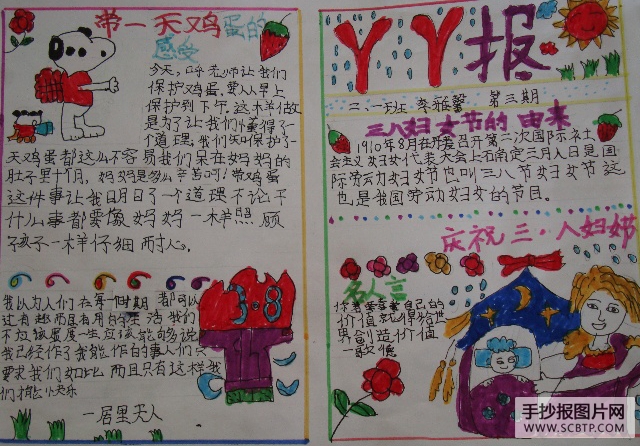 带一天鸡蛋的
感受
今天,呼老师让我们
保护鸡蛋,要从早上
保护到下午,这样做
是为了让我们懂得了一
个道理,我们知保护了一
天鸡蛋都这么不容易我们呆在妈妈的
肚子里十个月,妈妈是多么辛苦呵!带鸡蛋
这件事让我明白了一个道理不论干
什么事都要像妈妈一样照顾
孩子一样仔细而耐心。
我以为人们在每个时期都可以
过有趣而且有用的生活我们
不应该虚度一生应该能够说
我已经作了我能作的事人们只
要求我们如此而且只有这样我
们才能有一点快乐
一居里夫人
3·8
丫丫报
二.一班 李雅馨 第三期
三八妇女节的由来
1910年8月在丹麦召开第二次国际社
会主义妇女代表大会上石南定三月八日是国
际劳动妇女节也叫三八节妇女节这
也是我国劳动妇女的节目。
庆祝三·八妇节
名人言
你若要喜爱自己的
价值就得给世
界创造价值
一歌德
手抄报图片网
WWW.SCBTP.COM